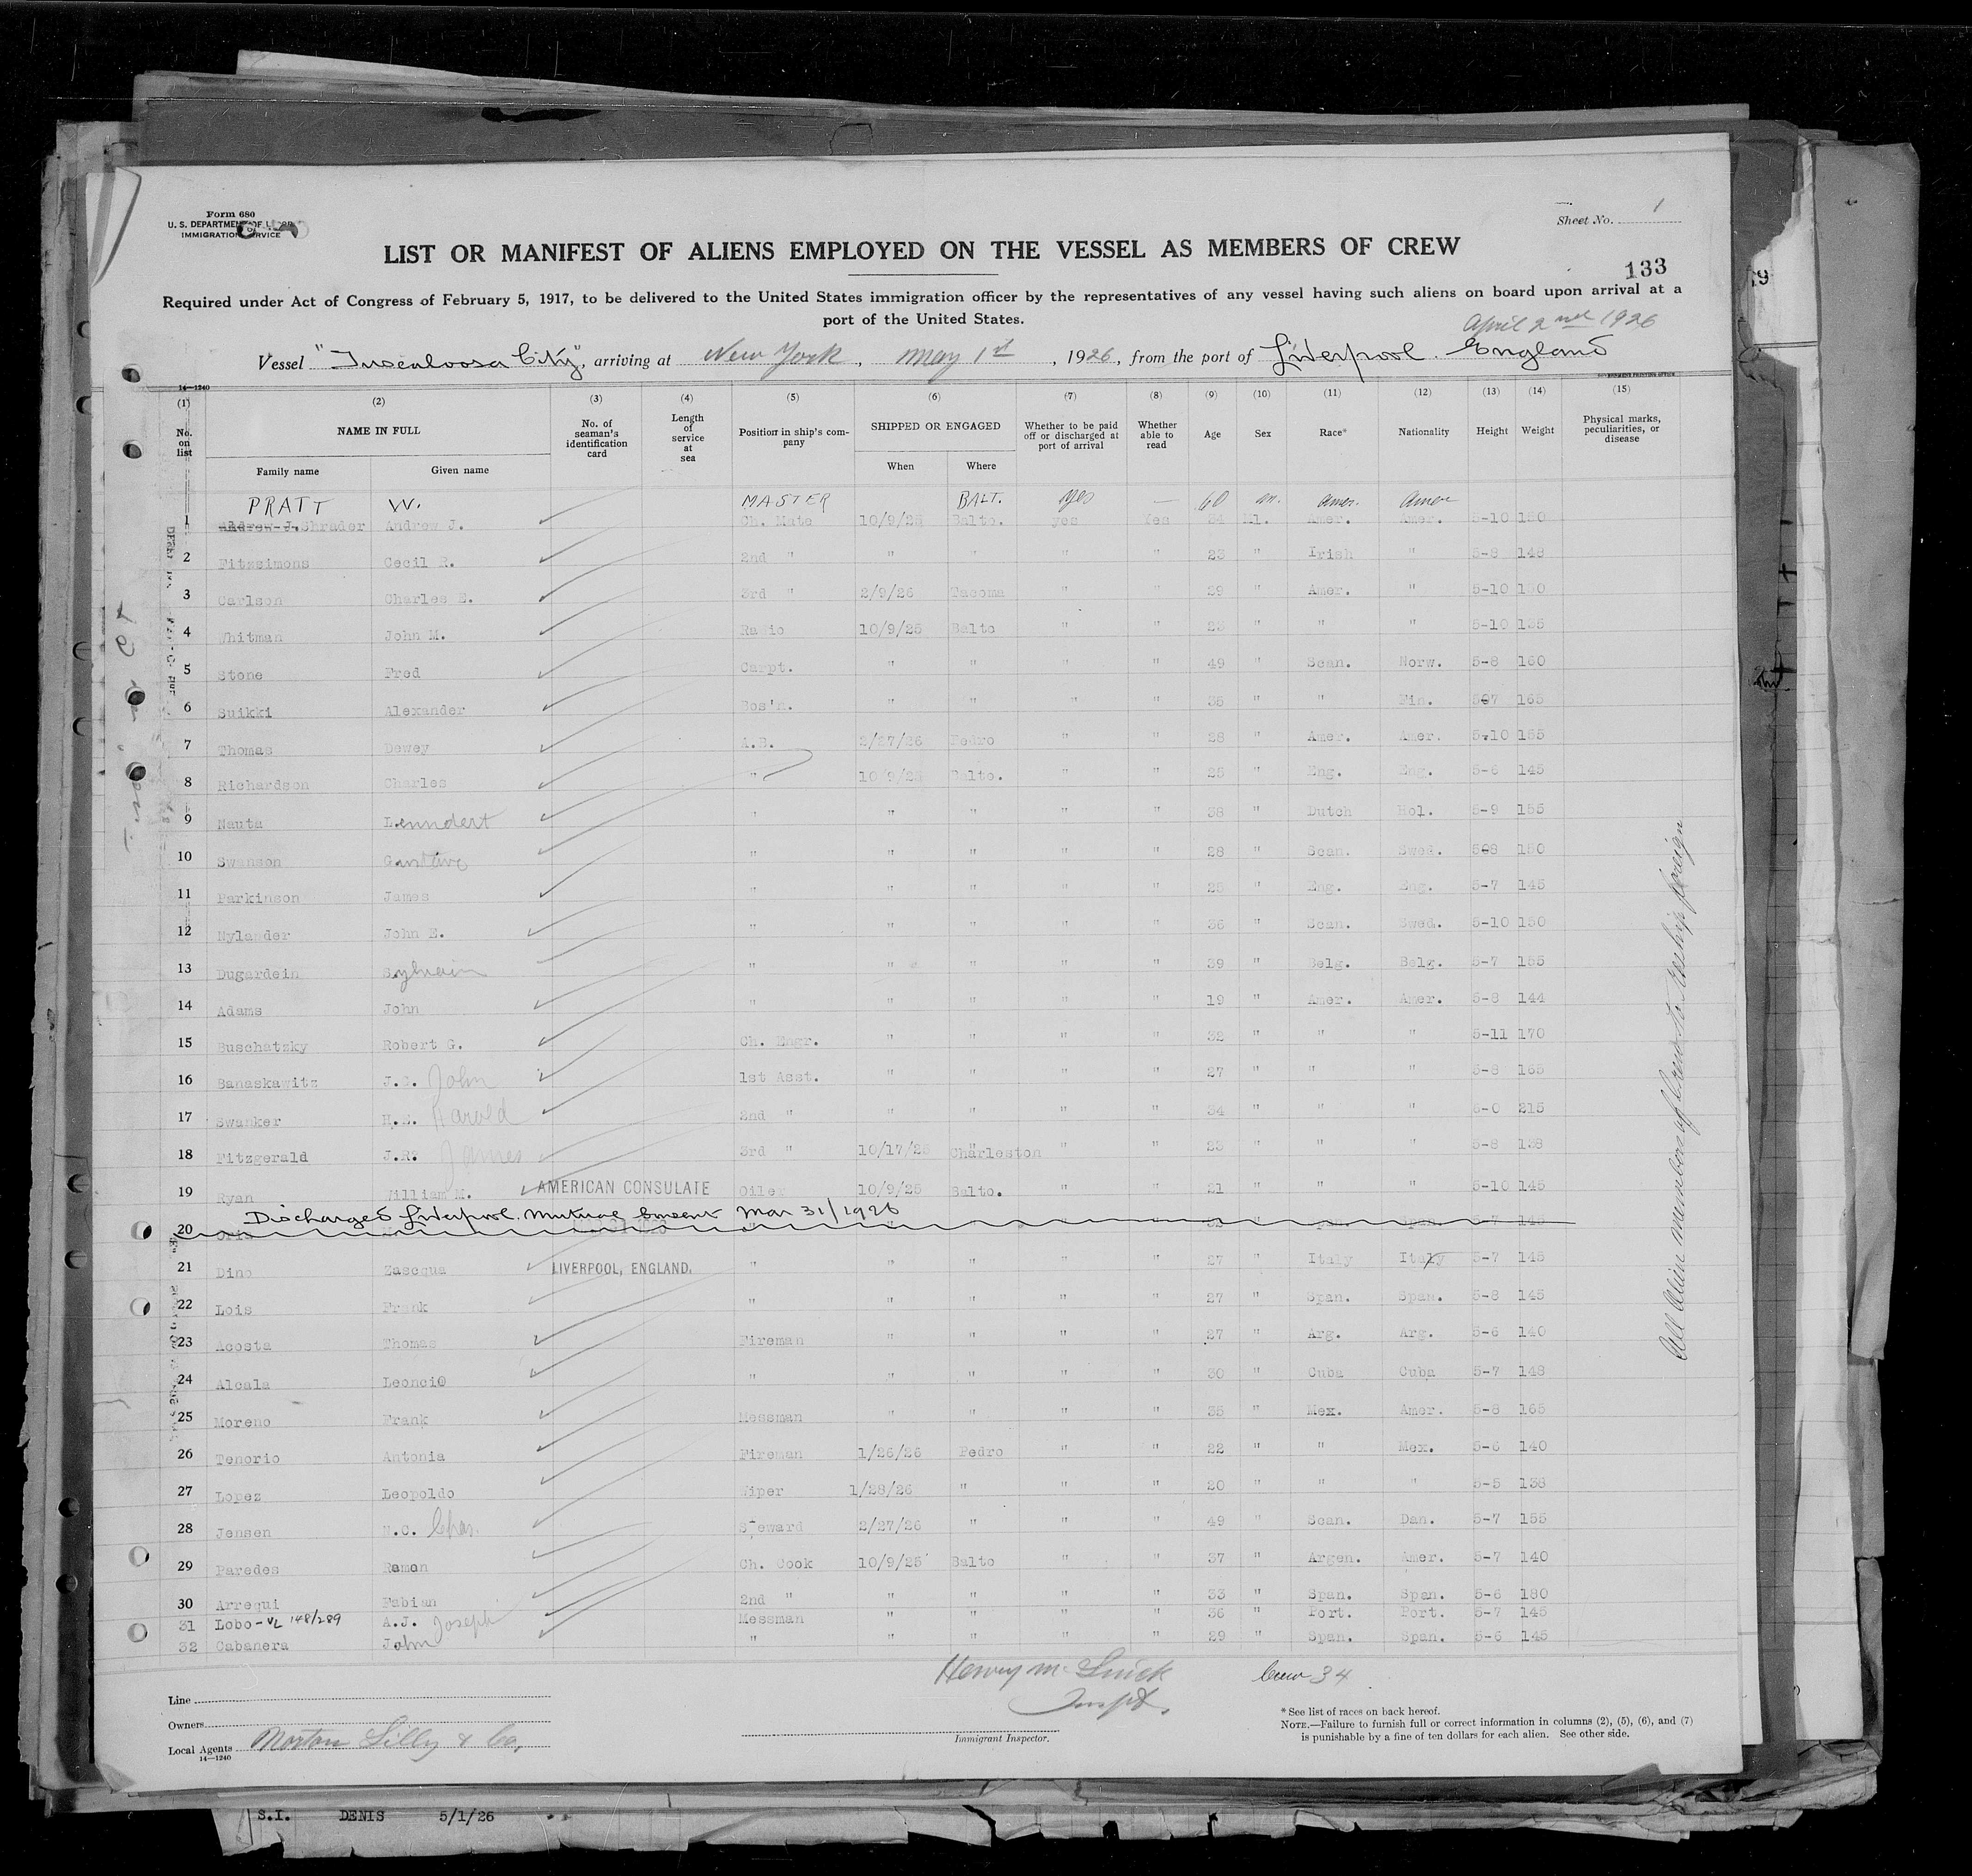 Form 680
U. S. DEPARTMENT OF LABOR
IMMIGRATION SERVICE
Sheet No. 1
LIST OR MANIFEST OF ALIENS EMPLOYED ON THE VESSEL AS MEMBERS OF CREW
133
Required under Act of Congress of February 5, 1917, to be delivered to the United States immigration officer by the representatives of any vessel having such aliens on board upon arrival at a
port of the United States.
April 2nd 1926
Vessel "Tuscaloosa City", arriving at New York, May 1st, 1926, from the port of Liverpool. England
14—1240 GOVERNMENT PRINTING OFFICE
(1) (2) (3) (4) (5) (6) (7) (8) (9) (10) (11) (12) (13) (14) (15)
No. on list NAME IN FULL No. of seaman's identification card Length of service at sea Position in ship's company SHIPPED OR ENGAGED Whether to be paid off or discharged at port of arrival Whether able to read Age Sex Race* Nationality Height Weight Physical marks, peculiarities, or disease
Family name Given name When Where
PRATT W. MASTER BALT. yes — 60 m. amer. amer
1 Andrew J. Shrader Andrew J. Ch. Mate 10/9/25 Balto. yes Yes 34 Ml. Amer. Amer. 5-10 150
2 Fitzsimons Cecil R. 2nd " " " " " 23 " Irish " 5-8 148
3 Carlson Charles E. 3rd " 2/9/26 Tacoma " " 29 " Amer. " 5-10
4 Whitman John M. Radio 10/9/25 Balto " " 23 " " " 5-10 135
5 Stone Fred Carpt. " " " " 49 " Scan. Norw. 5-8 160
6 Suikki Alexander Bos'n. " " " " 35 " " Fin. 5-7 165
7 Thomas Dewey A.B. 2/27/26 Pedro " " 28 " Amer. Amer. 5-10 155
8 Richardson Charles " 10/9/25 Balto. " " 25 " Eng. Eng. 5-6 145
9 Nauta Lenndert " " " " " 38 " Dutch Hol. 5-9 155
10 Swanson Gustive " " " " " 28 " Scan. Swed. 5-8 150
11 Parkinson James " " " " " 25 " Eng. Eng. 5-7 145
12 Nylander John E. " " " " " 36 " Scan. Swed. 5-10 150
13 Dugardein Sylvain " " " " " 39 " Belg. Belg. 5-7 155
14 Adams John " " " " " 19 " Amer. Amer. 5-8 144
15 Buschatsky Robert G. Ch. Engr. " " " " 32 " " " 5-11 170
16 Banaskawitz J.G. John 1st Asst. " " " " 27 " " " 5-8 165
17 Swanker H.E. Harold 2nd " " " " " 34 " " " 5-0 215
18 Fitzgerald J.R. James 3rd " 10/17/25 Charleston " " 23 " " " 5-8 138
19 Ryan William M. AMERICAN CONSULATE Oiler 10/9/25 Balto. " " 21 " " " 5-10 145
Discharged Liverpool. mutual Consent Mar 31/1926
20 5-7 145
21 Dino Zascqua LIVERPOOL, ENGLAND. " " " " " 27 " Italy Italy 5-7 145
22 Lois Frank " " " " " 27 " Span. Span. 5-8 145
23 Acosta Thomas Fireman " " " " 27 " Arg. Arg. 5-6 140
24 Alcala Leoncio " " " " " 30 " Cuba Cuba 5-7 148
25 Moreno Frank Messman " " " " 35 " Mex. Amer. 5-8 165
26 Tenorio Antonia Fireman 1/26/26 Pedro " " 22 " " Mex. 5-6 140
27 Lopez Leopoldo Wiper 1/28/26 " " " 20 " " " 5-5 138
28 Jensen N.C. Chas. Steward 2/27/26 " " " 49 " Scan. Dan. 5-7 155
29 Paredes Ramon Ch. Cook 10/9/25 Balto " " 37 " Argen. Amer. 5-7 140
30 Arrequi Fabian 2nd " " " " " 33 " Span. Span. 5-6 180
31 Lobo - VL 148/289 A.J. Joseph Messman " " " " 36 " Port. Port. 5-7 145
32 Cabanera John " " " " " 29 " Span. Span. 5-6 145
All Alien members of Crew to Reship foreign
Henry Mc
Inspt.
Crew 34
Line
Owners
Local Agents Norton Lilly & Co.
14—1240
Immigrant Inspector.
* See list of races on back hereof.
NOTE.—Failure to furnish full or correct information in columns (2), (5), (6), and (7)
is punishable by a fine of ten dollars for each alien. See other side.
S.I. DENIS 5/1/26